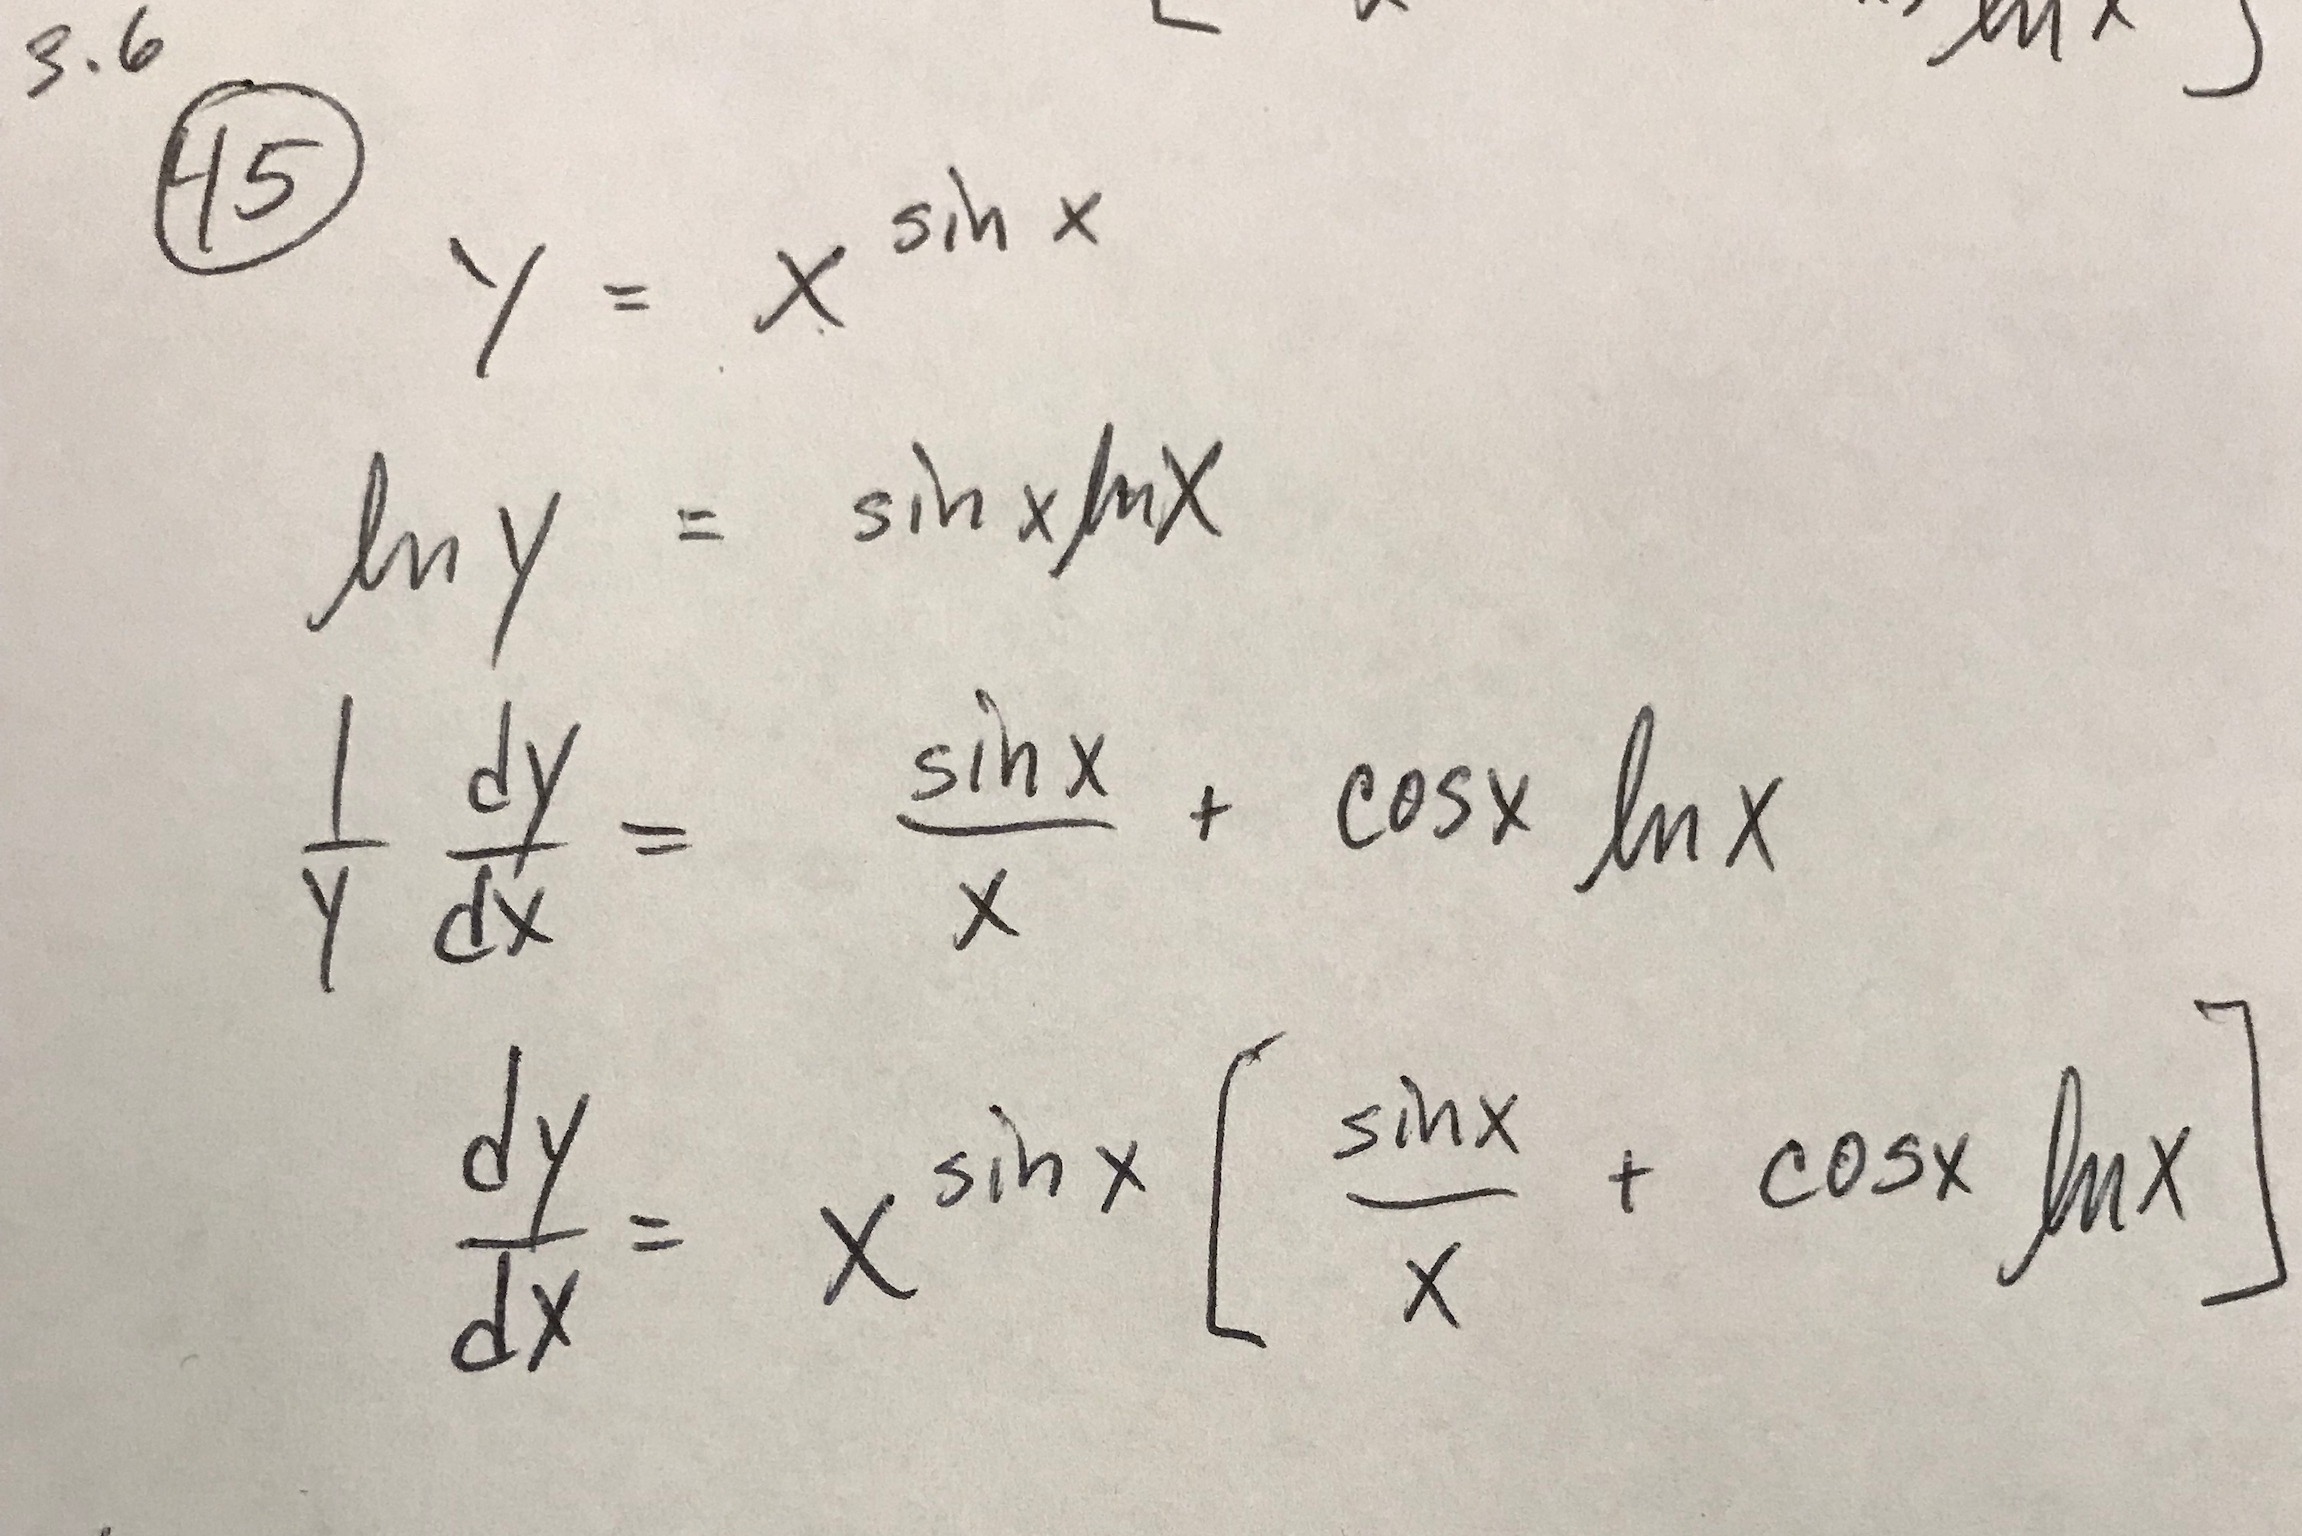 ln x ]
3.6
45
y = x^{sin x}
ln y = sin x ln x
\frac{1}{y} \frac{dy}{dx} = \frac{sin x}{x} + cos x ln x
\frac{dy}{dx} = x^{sin x} [ \frac{sin x}{x} + cos x ln x ]